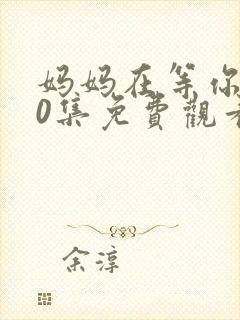 妈妈在等你
0集免費觀看
余淳